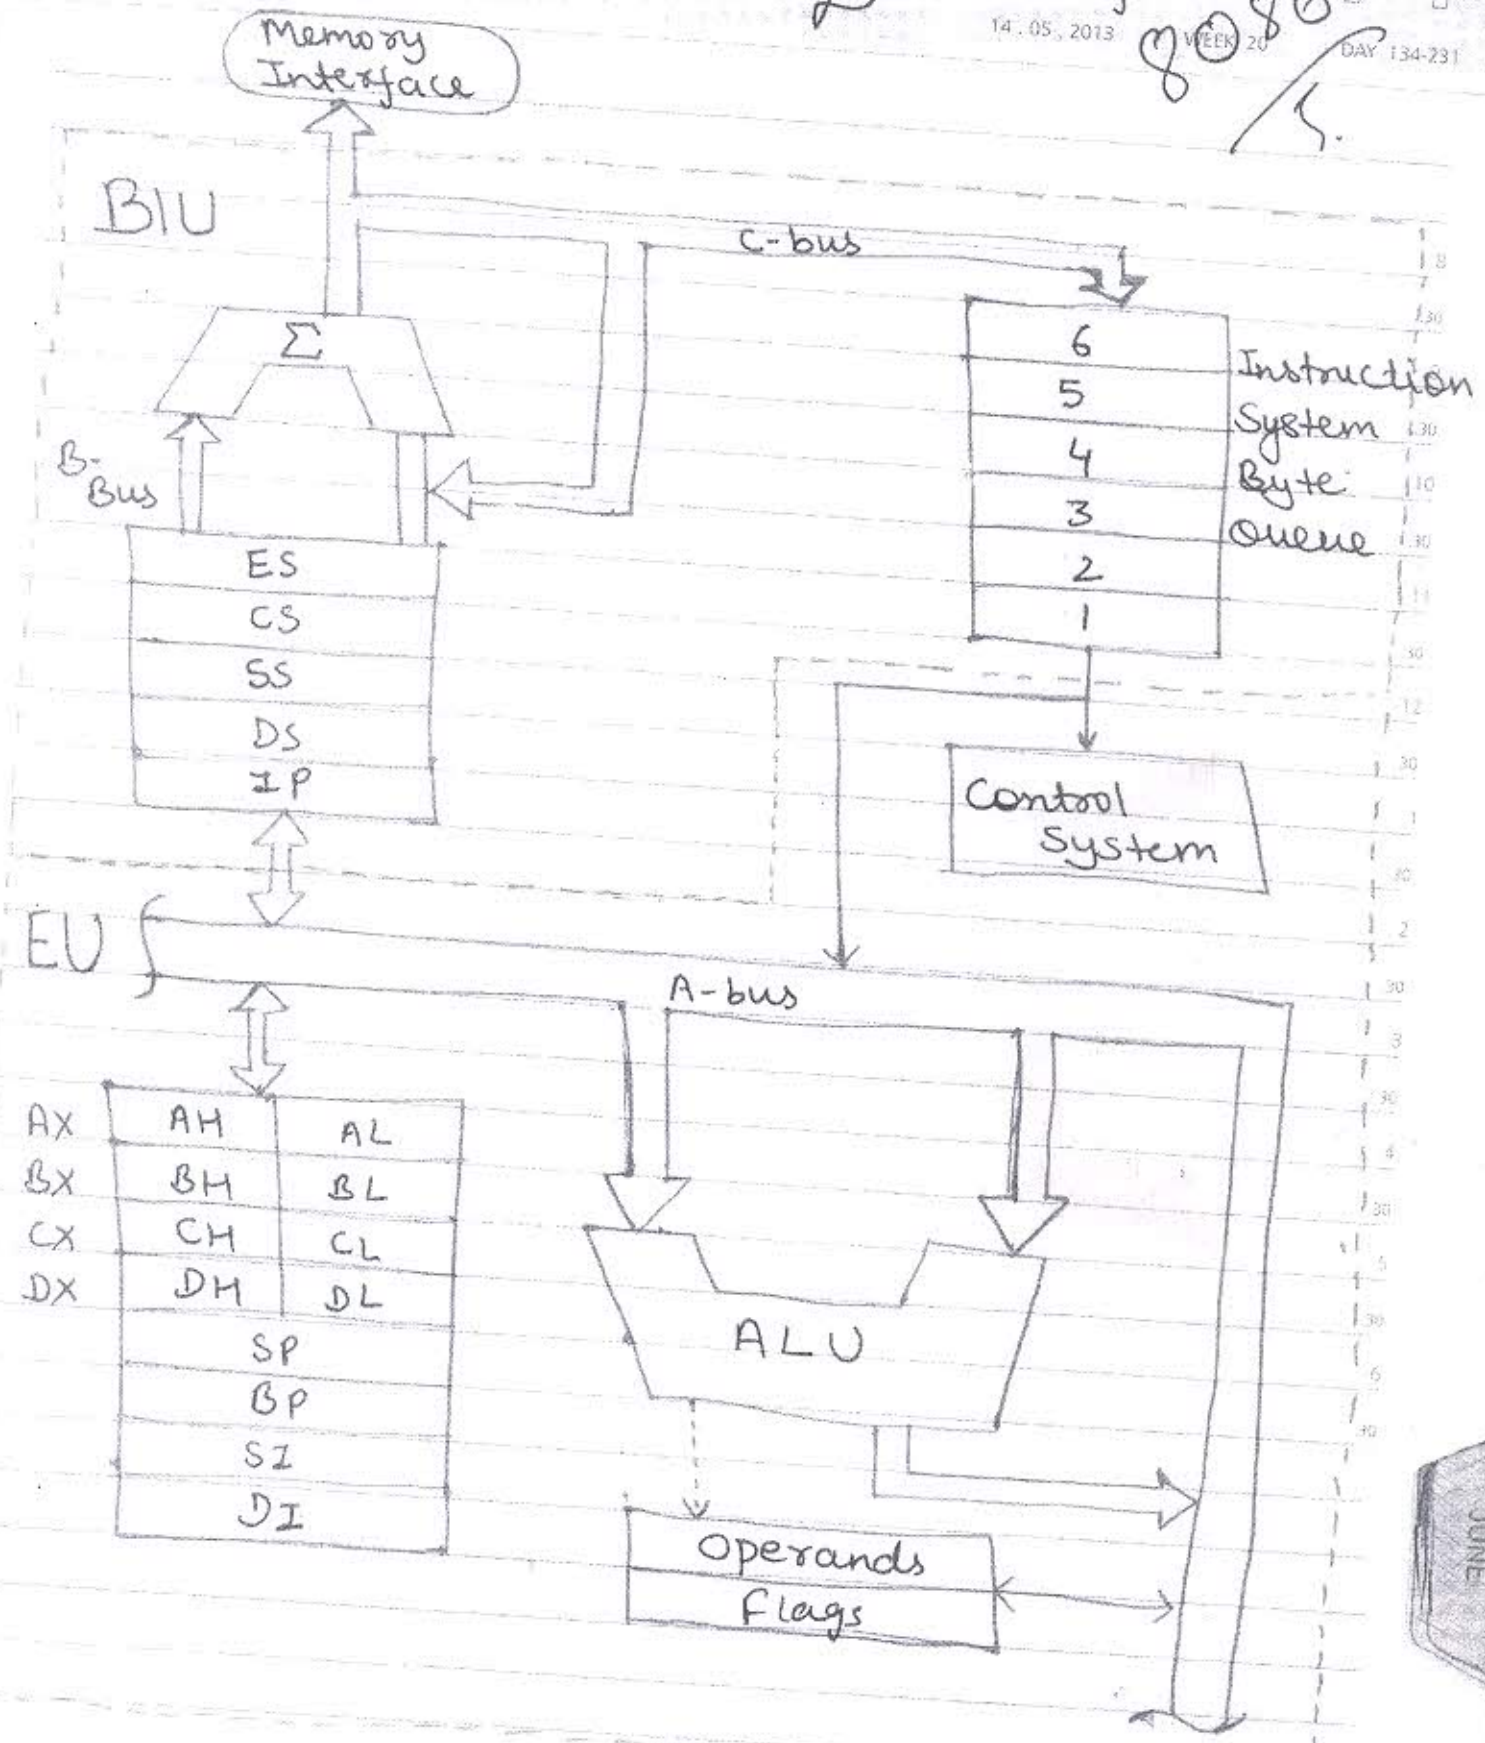 14.05.2013
WEEK 20
DAY 134-231
8086
Memory
Interface
BIU
C-bus
Σ
B-
Bus
6
5
4
3
2
1
Instruction
System
Byte
Queue
ES
CS
SS
DS
IP
Control
System
EU
A-bus
AX AH AL
BX BH BL
CX CH CL
DX DH DL
SP
BP
SI
DI
ALU
Operands
Flags
JUNE